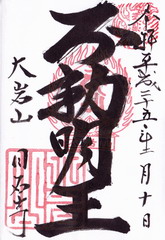 奉拝 平成二十五年十一月十日
不動明王
大岩山 日石寺